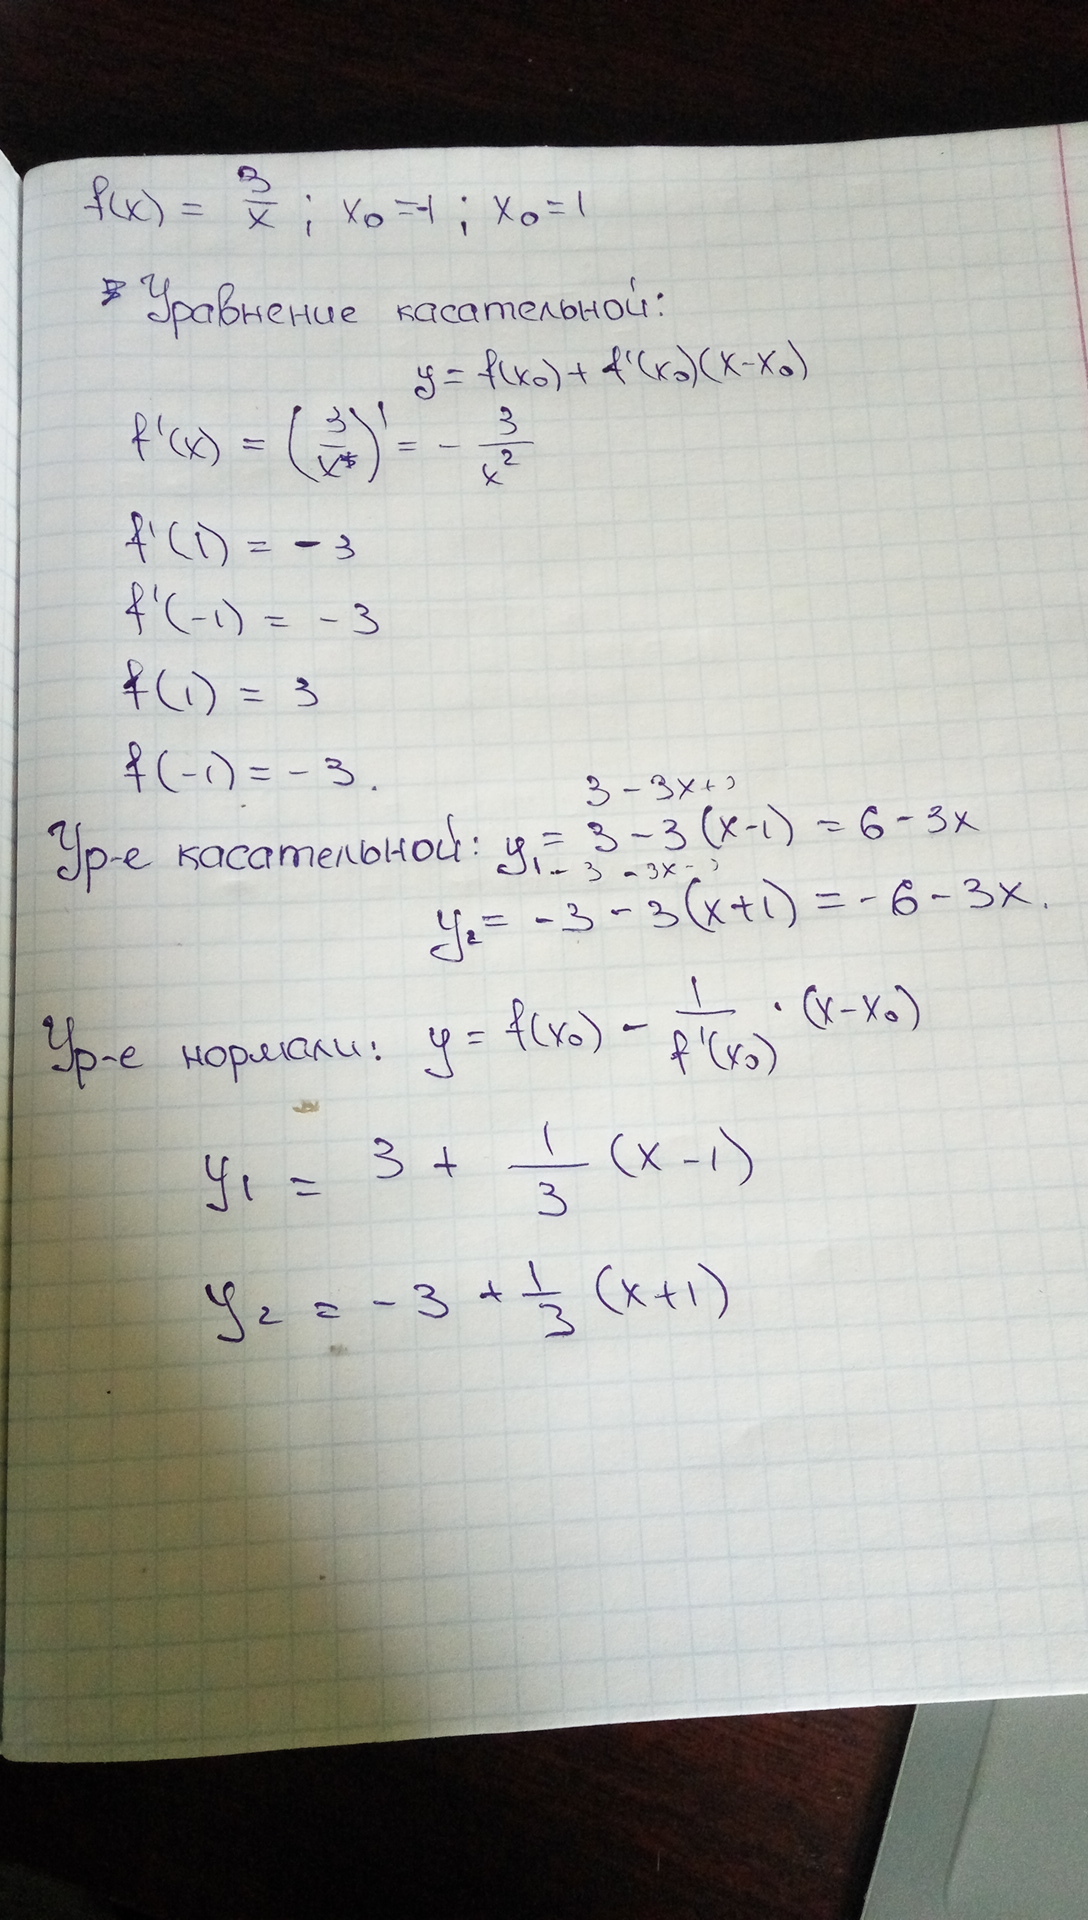 f(x) = 3/x ; x₀ = -1 ; x₀ = 1
Уравнение касательной:
y = f(x₀) + f'(x₀)(x-x₀)
f'(x) = (3/x)' = - 3/x²
f'(1) = - 3
f'(-1) = - 3
f(1) = 3
f(-1) = - 3.
3 - 3x +
Ур-е касательной: y₁ = 3 - 3(x-1) = 6 - 3x
- 3 - 3x -
y₂ = -3 - 3(x+1) = - 6 - 3x.
Ур-е нормали: y = f(x₀) - 1/f'(x₀) · (x-x₀)
y₁ = 3 + 1/3 (x - 1)
y₂ = - 3 + 1/3 (x+1)